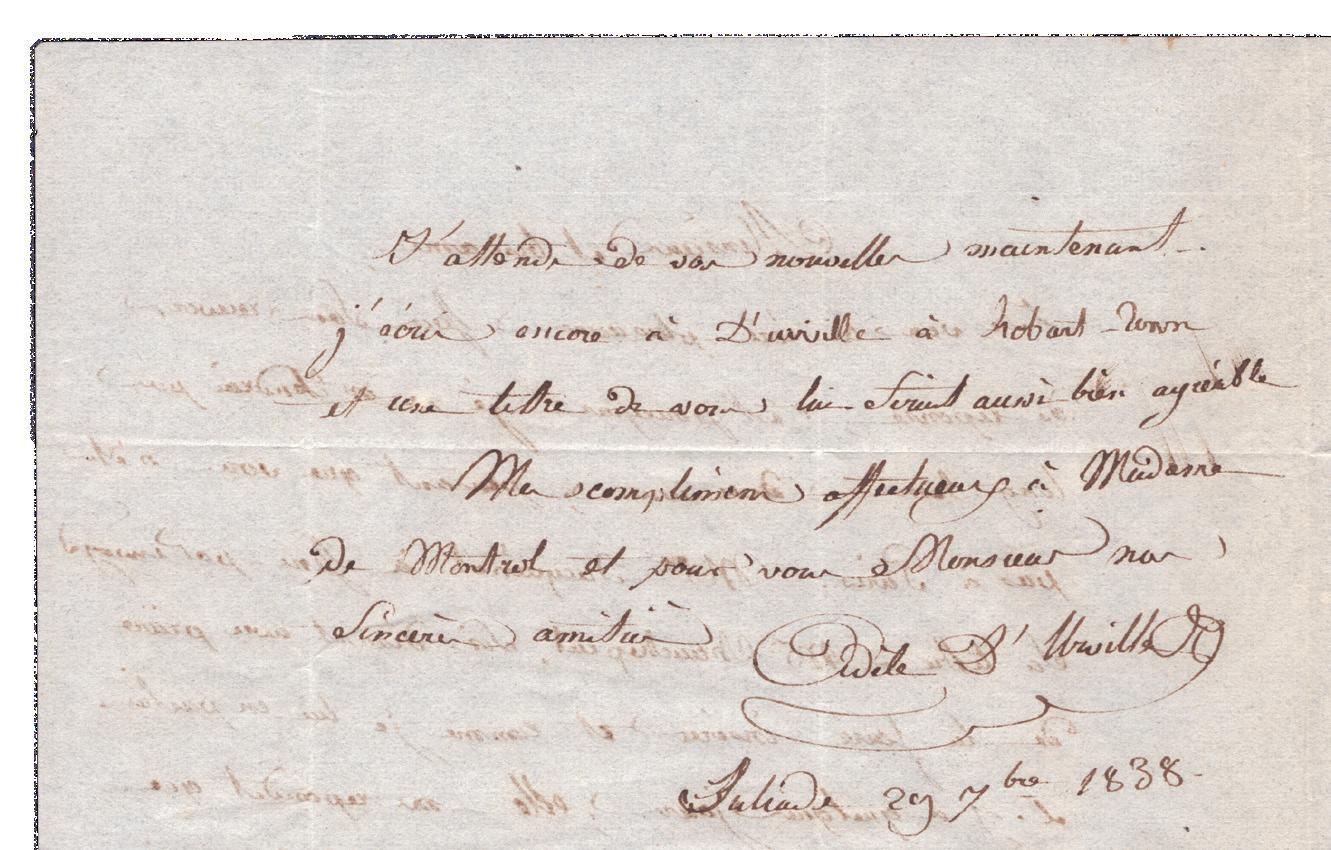 J'attends de vos nouvelles maintenant.
j'écris encore à D'urville à hobart-Town
et une lettre de vous lui serait aussi bien agréable
Mes compliments affectueux à Madame
de Montrol et pour vous Monsieur nos
sincères amitiés
Adèle D'Urville
29 7bre 1838